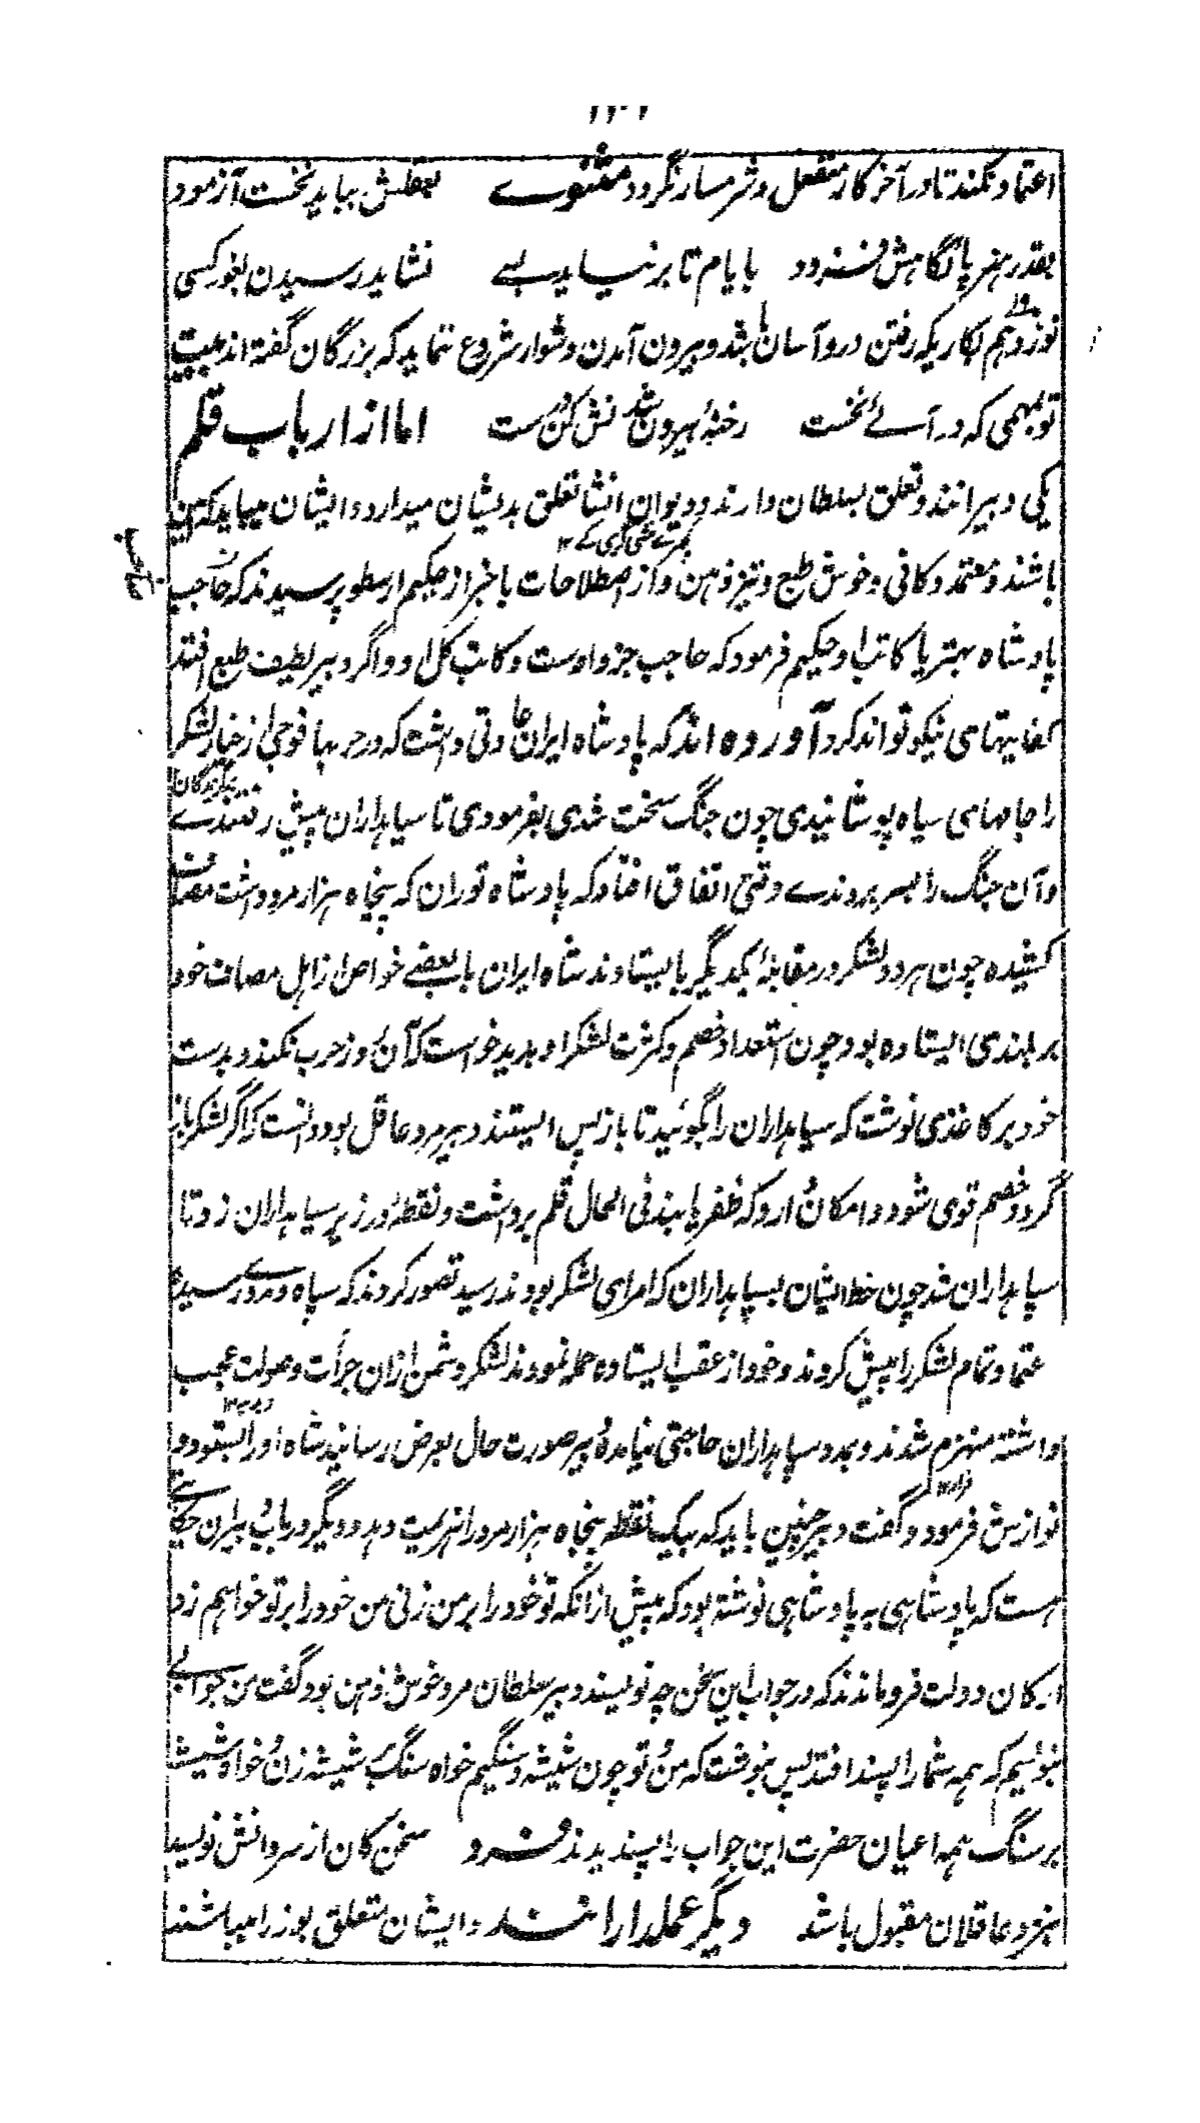 اعتماد نکند تا در آخر کار منفعل و شرمسار نگردد مثنوے بعقلش بباید نخست آزمود
بقدر هنر پایگاهش فزود بایام تا بر نیاید بسے نشاید رسیدن بغور کسی
نوزدهم بکاریکه رفتن درو آسان باشد و بیرون آمدن دشوار شروع ننماید که بزرگان گفته اند بیت
تو بمهمی که در آئے نخست رخنهٔ بیرون شدنش کن درست اما از ارباب قلم
یکی دبیرانند و تعلق بسلطان دارند و دیوان انشا تعلق بدیشان میدارد و ایشان میباید که امین
باشند و معتمد و کافی و خوش طبع و تیز ذهن و از اصطلاحات با خبر از حکیم ارسطو پرسیدند که حاجب
پادشاه بهتر یا کاتب او حکیم فرمود که حاجب جزو اوست و کاتب کل او و اگر دبیر لطیف طبع افتد
کفایتهای نیکو تواند کرد آورده اند که پادشاه ایران عادتی داشت که در حربها فوجی از خیار لشکر
را جامهای سیاه پوشانیدی چون جنگ سخت شدی بفرمودی تا سیاهداران پیش رفتندے
و آن جنگ را بسر بردندے وقتی اتفاق افتاد که پادشاه توران که پنجاه هزار مرد داشت مصاف
کشیده چون هر دو لشکر در مقابلهٔ یکدیگر بایستادند شاه ایران با بعضے خواص از اهل مصاف خود
بر بلندی ایستاده بود چون استعداد خصم و کثرت لشکر او بدید خواست که آن روز حرب نکند و بدست
خود بر کاغذی نوشت که سیاهداران را بگوئید تا باز پس ایستند دبیر مرد عاقل بود دانست که اگر لشکر باز
گردد خصم قوی شود و امکان دارد که ظفر یابند فی الحال قلم برداشت و نقطهٔ در زیر سیاهداران زد تا
سپاهداران شد چون خط ایشان بسپاهداران که امرای لشکر بودند رسید تصور کردند که سپاه
و تمام لشکر را پیش کردند و خود از عقب ایستاده حمله نمودند لشکر دشمن از آن جرأت و صولت عجب
داشته منهزم شدند و بمدد سپاهداران حاجتی نیامد دبیر صورت حال بعرض رسانید شاه او را بستود و
نوازش فرمود و گفت دبیر چنین باید که بیک نقطه پنجاه هزار مرد را هزیمت دهد و دیگر در باب دبیران حکایتے
هست که پادشاهی به پادشاهی نوشته بود که پیش از آنکه تو خود را بر من زنی من خود را بر تو خواهم زد
ارکان دولت فروماندند که در جواب این سخن چه نویسند دبیر سلطان مرد خوش ذهن بود گفت من جوابے
بنویسم که همه شما را پسند افتد پس بنوشت که من و تو چون شیشه و سنگیم خواه سنگ بر شیشه زن و خواه شیشه
بر سنگ همه اعیان حضرت این جواب را پسندیدند فرد سخن کان از سر دانش نویسند
بنزد عاقلان مقبول باشد دیگر عملدارانند و ایشان متعلق بوزرا میباشند